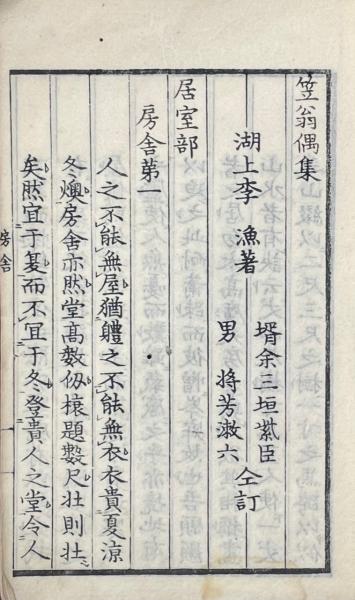 笠翁偶集
湖上李　漁著
壻余三垣䋣臣
男　将芳潡六
仝訂
居室部
房舍第一
人之不能無屋猶軆之不能無衣衣貴夏涼
冬燠房舍亦然堂高數仭榱題數尺壮則壮
矣然宜于夏而不宜于冬登貴人之堂令人
房舍